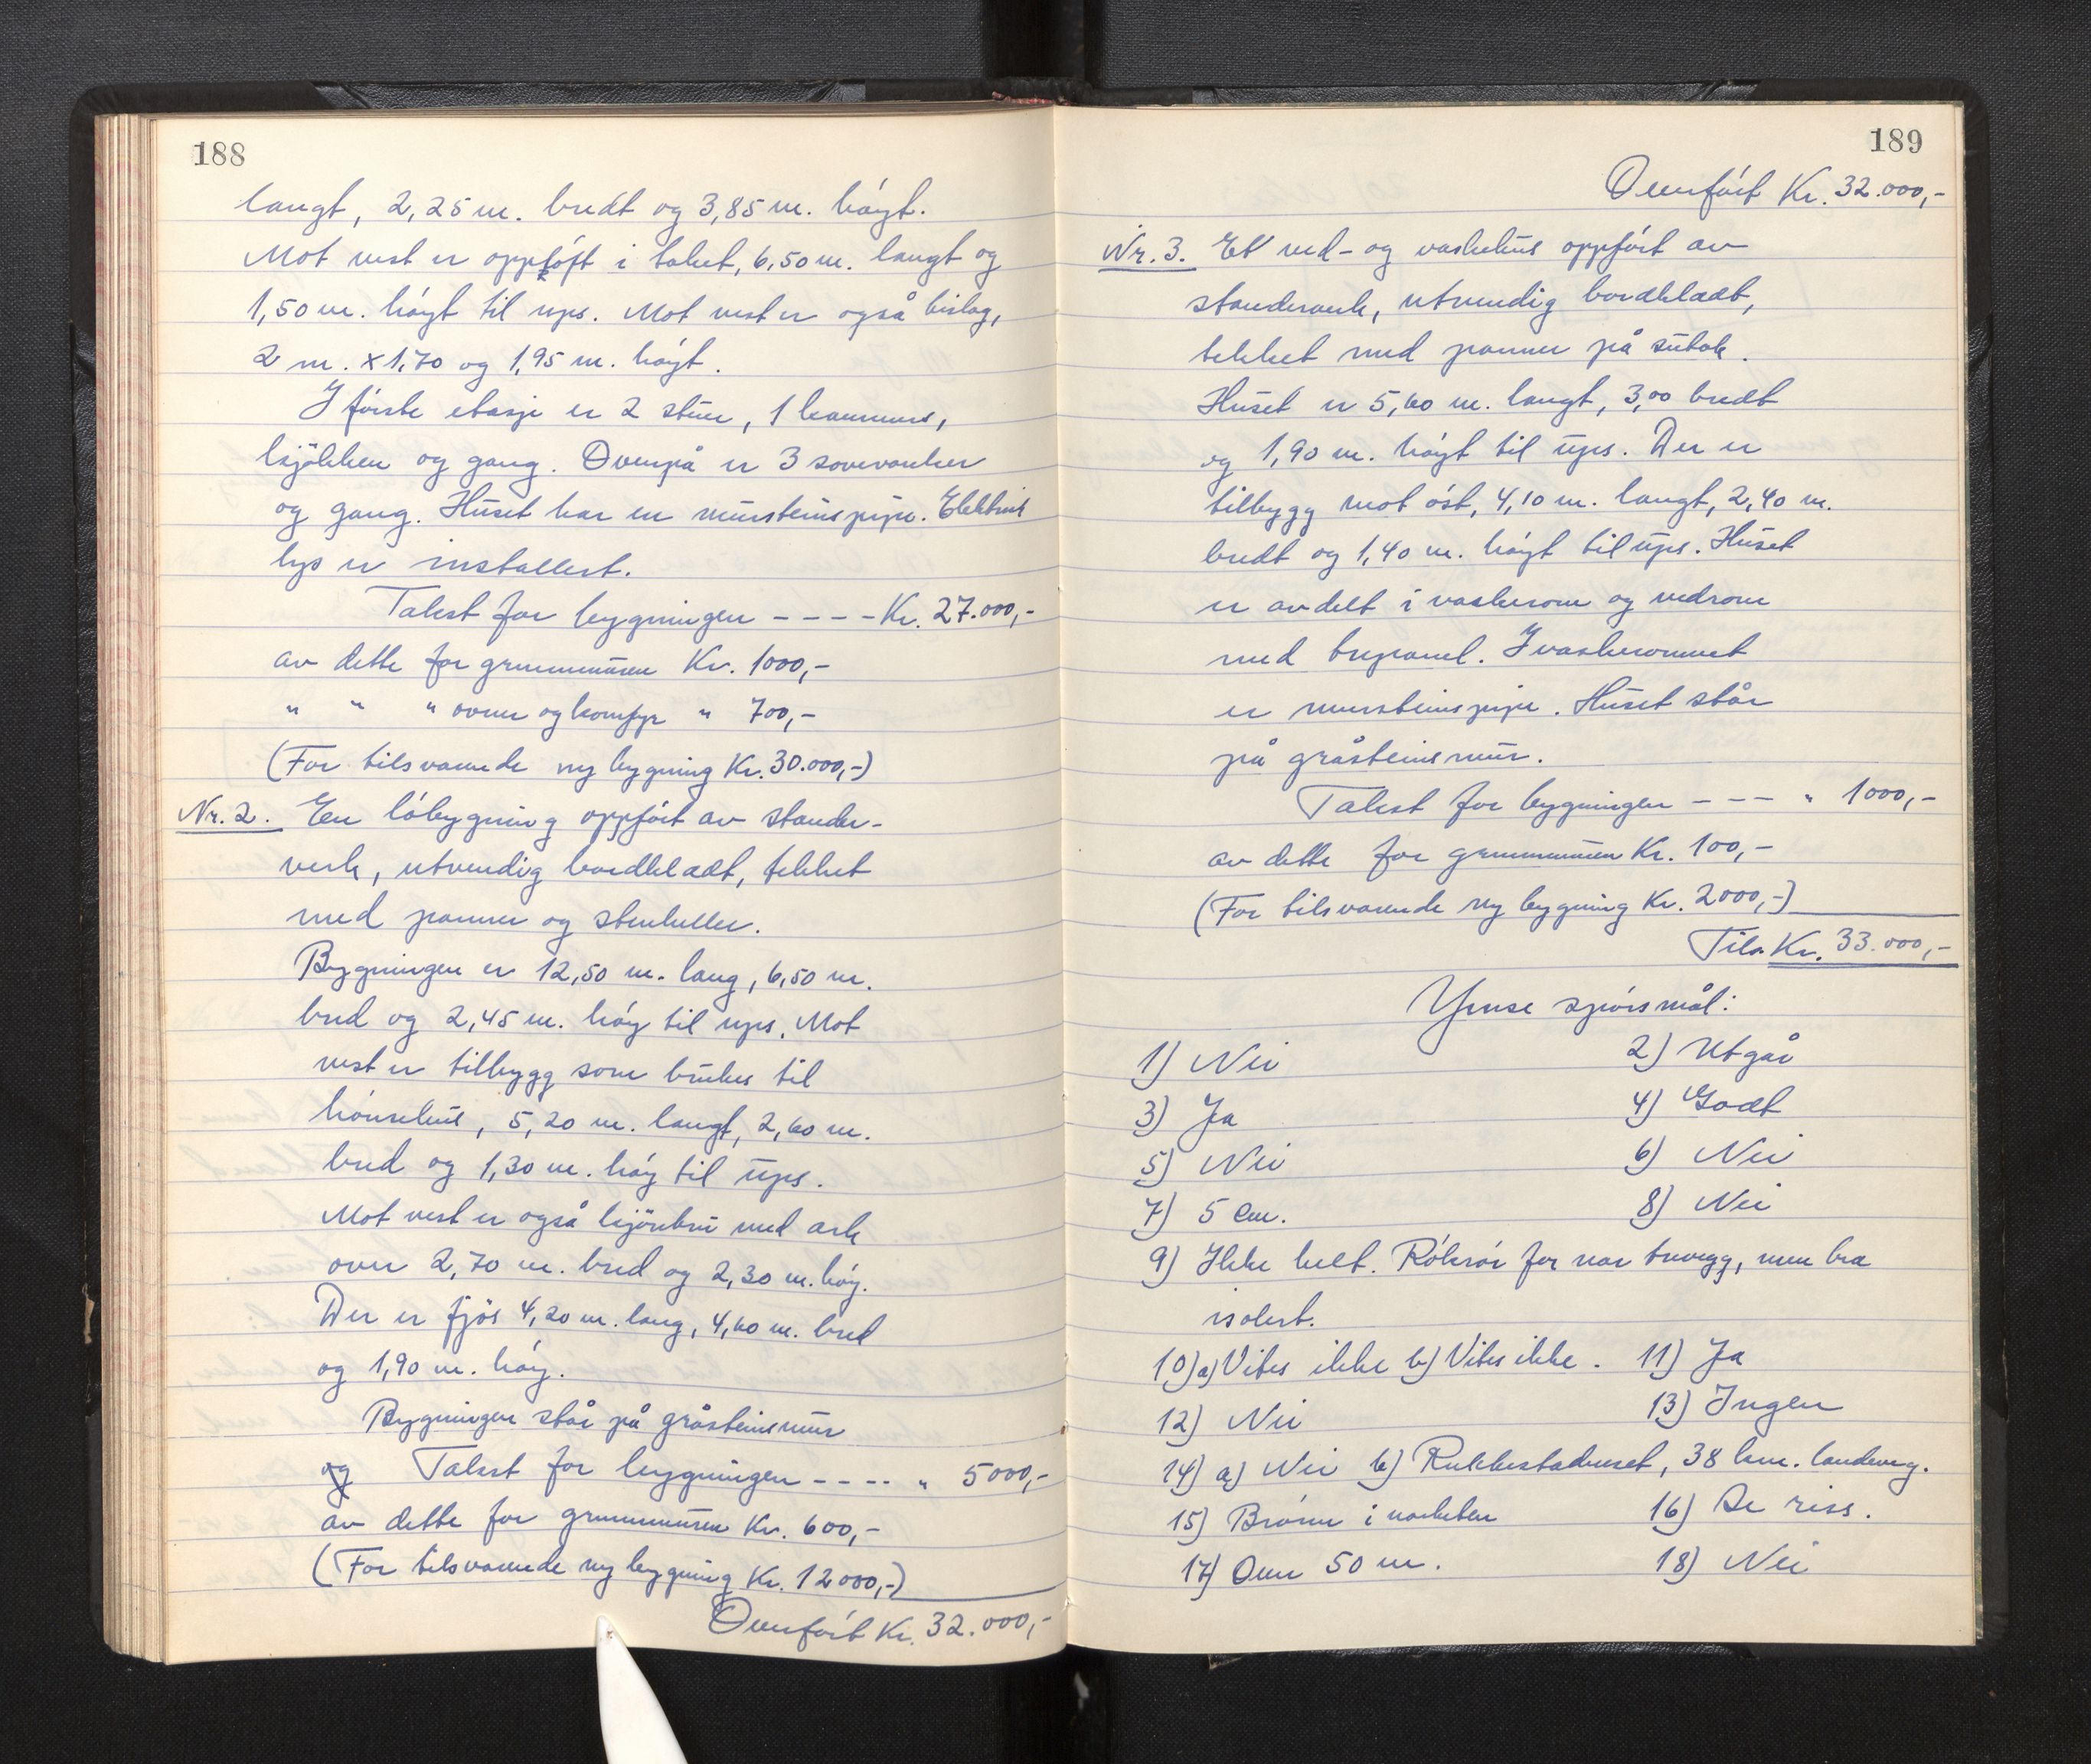 188
langt, 2,25 m. bredt og 3,85 m. høyt.
Mot vest er oppløft i taket, 6,50 m. langt og
1,50 m. høyt til ups. Mot vest er også bislag,
2 m. x 1,70 og 1,95 m. høyt.
I første etasje er 2 stuer, 1 kammers,
kjøkken og gang. Ovenpå er 3 soveværelser
og gang. Huset har en mursteinspipe. Elektrisk
lys er installert.
Takst for bygningen - - - - Kr. 27.000,-
av dette for grunnmuren Kr. 1000,-
" " " ovner og komfyr " 700,-
(For tilsvarende ny bygning Kr. 30.000,-)
Nr. 2. En løbygning oppført av stender-
verk, utvendig bordkledt, tekket
med panner og stenheller.
Bygningen er 12,50 m. lang, 6,50 m.
bred og 2,45 m. høy til ups. Mot
vest er tilbygg som brukes til
hønsehus, 5,20 m. langt, 2,60 m.
bred og 1,30 m. høy til ups.
Mot vest er også kjørebru med ark
over 2,70 m. bred og 2,30 m. høy.
Der er fjös 4,20 m. lang, 4,60 m. bred
og 1,90 m. høy.
Bygningen står på gråsteinsmur
og Takst for bygningen - - - - " 5000,-
av dette for grunnmuren Kr. 600,-
(For tilsvarende ny bygning Kr. 12000,-)
Overført Kr. 32.000,-
189
Overført Kr. 32.000,-
Nr. 3. Et ved- og vaskehus oppført av
stenderverk, utvendig bordkledt,
tekket med panner på sutak.
Huset er 5,60 m. langt, 3,00 bredt
og 1,90 m. høyt til ups. Der er
tilbygg mot øst, 4,10 m. langt, 2,40 m.
bredt og 1,40 m. høyt til ups. Huset
er avdelt i vaskerom og vedrom
med trepanel. I vaskerommet
er mursteinspipe. Huset står
på gråsteinsmur.
Takst for bygningen - - - " 1000,-
av dette for grunnmuren Kr. 100,-
(For tilsvarende ny bygning Kr. 2000,-)
Tils. Kr. 33.000,-
Ymse spørsmål:
1) Nei 2) Utgår
3) Ja 4) Godt
5) Nei 6) Nei
7) 5 cm. 8) Nei
9) Ikke helt. Røkrør for nær trevegg, men bra
isolert.
10) a) Vites ikke b) Vites ikke. 11) Ja
12) Nei 13) Ingen
14) a) Nei b) Rukkestadneset, 38 km. landeveg.
15) Brønn i nærheten 16) Se riss.
17) Over 50 m. 18) Nei